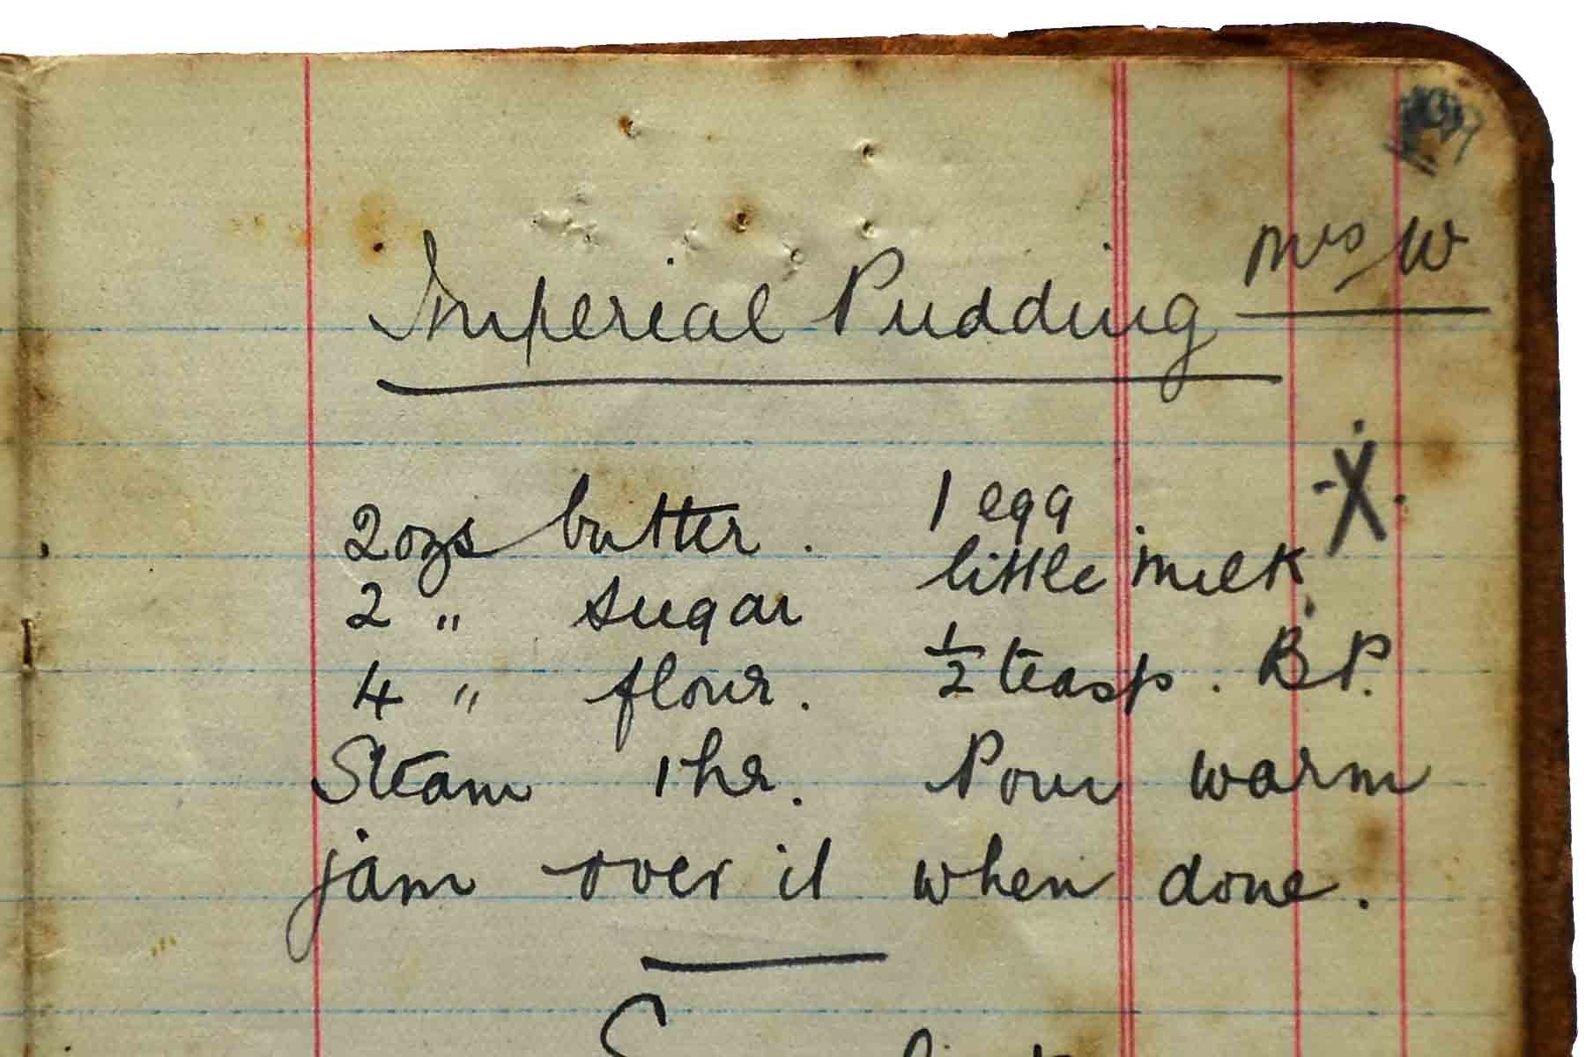 Mrs W
Imperial Pudding
2ozs butter. 1 egg
2 " sugar little milk
4 " flour. ½ teasp. B.P.
Steam 1 hr. Pour warm
jam over it when done.